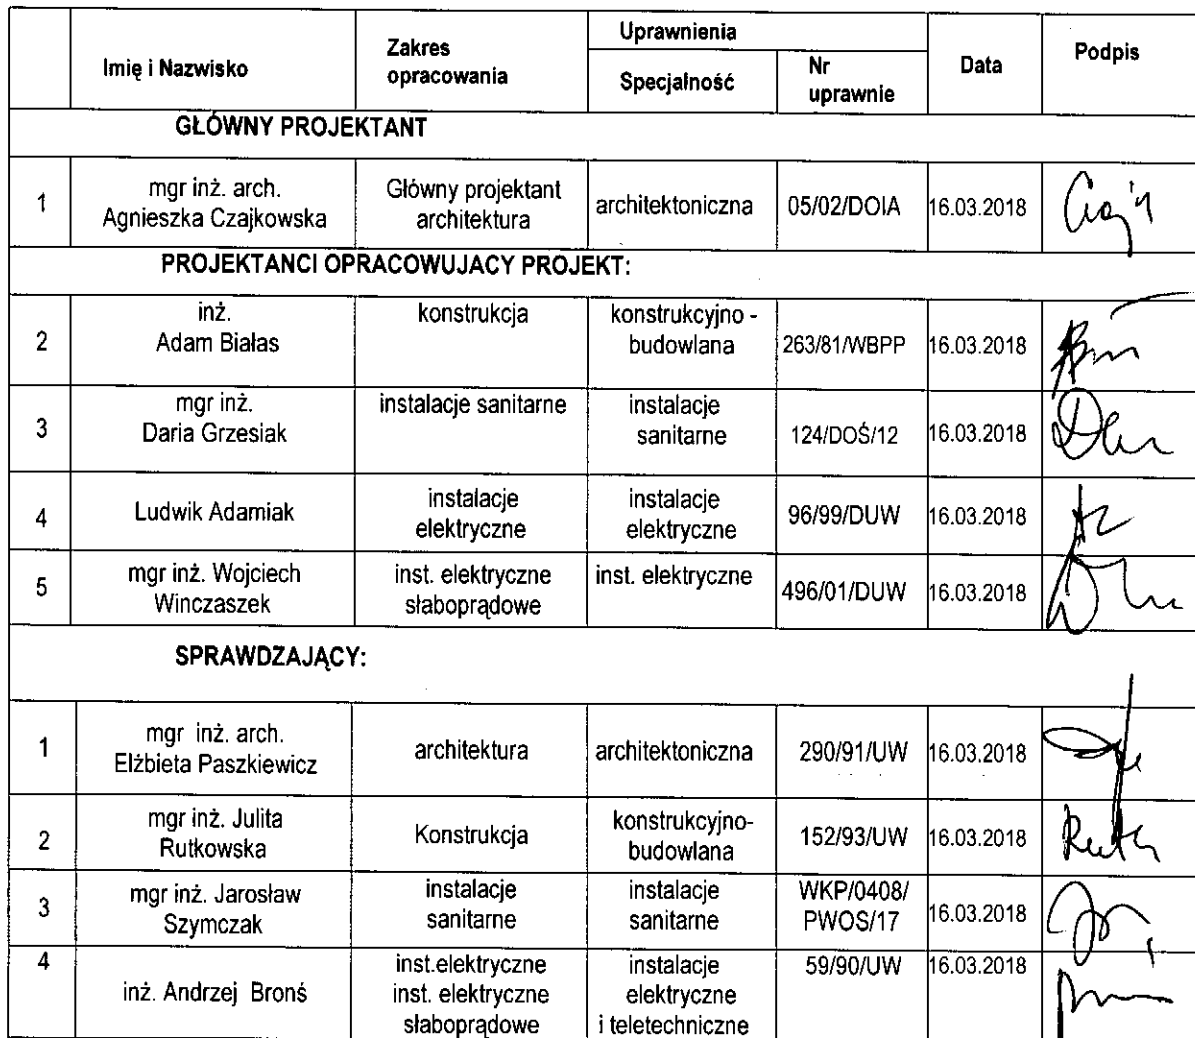 Imię i Nazwisko
Zakres
opracowania
Uprawnienia
Specjalność
Nr
uprawnie
Data
Podpis
GŁÓWNY PROJEKTANT
1
mgr inż. arch.
Agnieszka Czajkowska
Główny projektant
architektura
architektoniczna
05/02/DOIA
16.03.2018
PROJEKTANCI OPRACOWUJACY PROJEKT:
2
inż.
Adam Białas
konstrukcja
konstrukcyjno -
budowlana
263/81/WBPP
16.03.2018
3
mgr inż.
Daria Grzesiak
instalacje sanitarne
instalacje
sanitarne
124/DOŚ/12
16.03.2018
4
Ludwik Adamiak
instalacje
elektryczne
instalacje
elektryczne
96/99/DUW
16.03.2018
5
mgr inż. Wojciech
Winczaszek
inst. elektryczne
słaboprądowe
inst. elektryczne
496/01/DUW
16.03.2018
SPRAWDZAJĄCY:
1
mgr inż. arch.
Elżbieta Paszkiewicz
architektura
architektoniczna
290/91/UW
16.03.2018
2
mgr inż. Julita
Rutkowska
Konstrukcja
konstrukcyjno-
budowlana
152/93/UW
16.03.2018
3
mgr inż. Jarosław
Szymczak
instalacje
sanitarne
instalacje
sanitarne
WKP/0408/
PWOS/17
16.03.2018
4
inż. Andrzej Bronś
inst.elektryczne
inst. elektryczne
słaboprądowe
instalacje
elektryczne
i teletechniczne
59/90/UW
16.03.2018